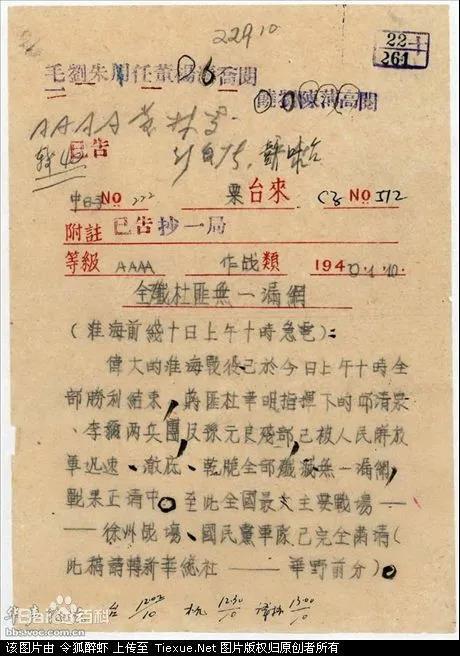 229 10
22-1
261
毛劉朱周任董楊 喬閱
陳薄高閱
AAAA
已告
中日 NO 222 粟台來 NO 512
附註 已告抄一局
等級 AAAA 作战類 1940.1.10.
全殲杜匪無一漏網
(淮海前綫十日上午十時急電):
偉大的淮海戰役已於今日上午十時全
部勝利結束,蔣匪杜聿明指揮下的邱清泉
、李彌两兵團及孫元良殘部已被人民解放
軍迅速、澈底、乾脆全部殲滅無一漏網,
戰果正清中。至此全國最大主要戰場——
——徐州战場、國民黨軍隊已完全肅清(
此稿請轉新華總社——華野前分)。
台 12:02/10 杭 12:30/10 13:00/10
Bai百科
www.bbscn.org
该图片由 令狐醉虾 上传至 Tiexue.Net 图片版权归原创者所有